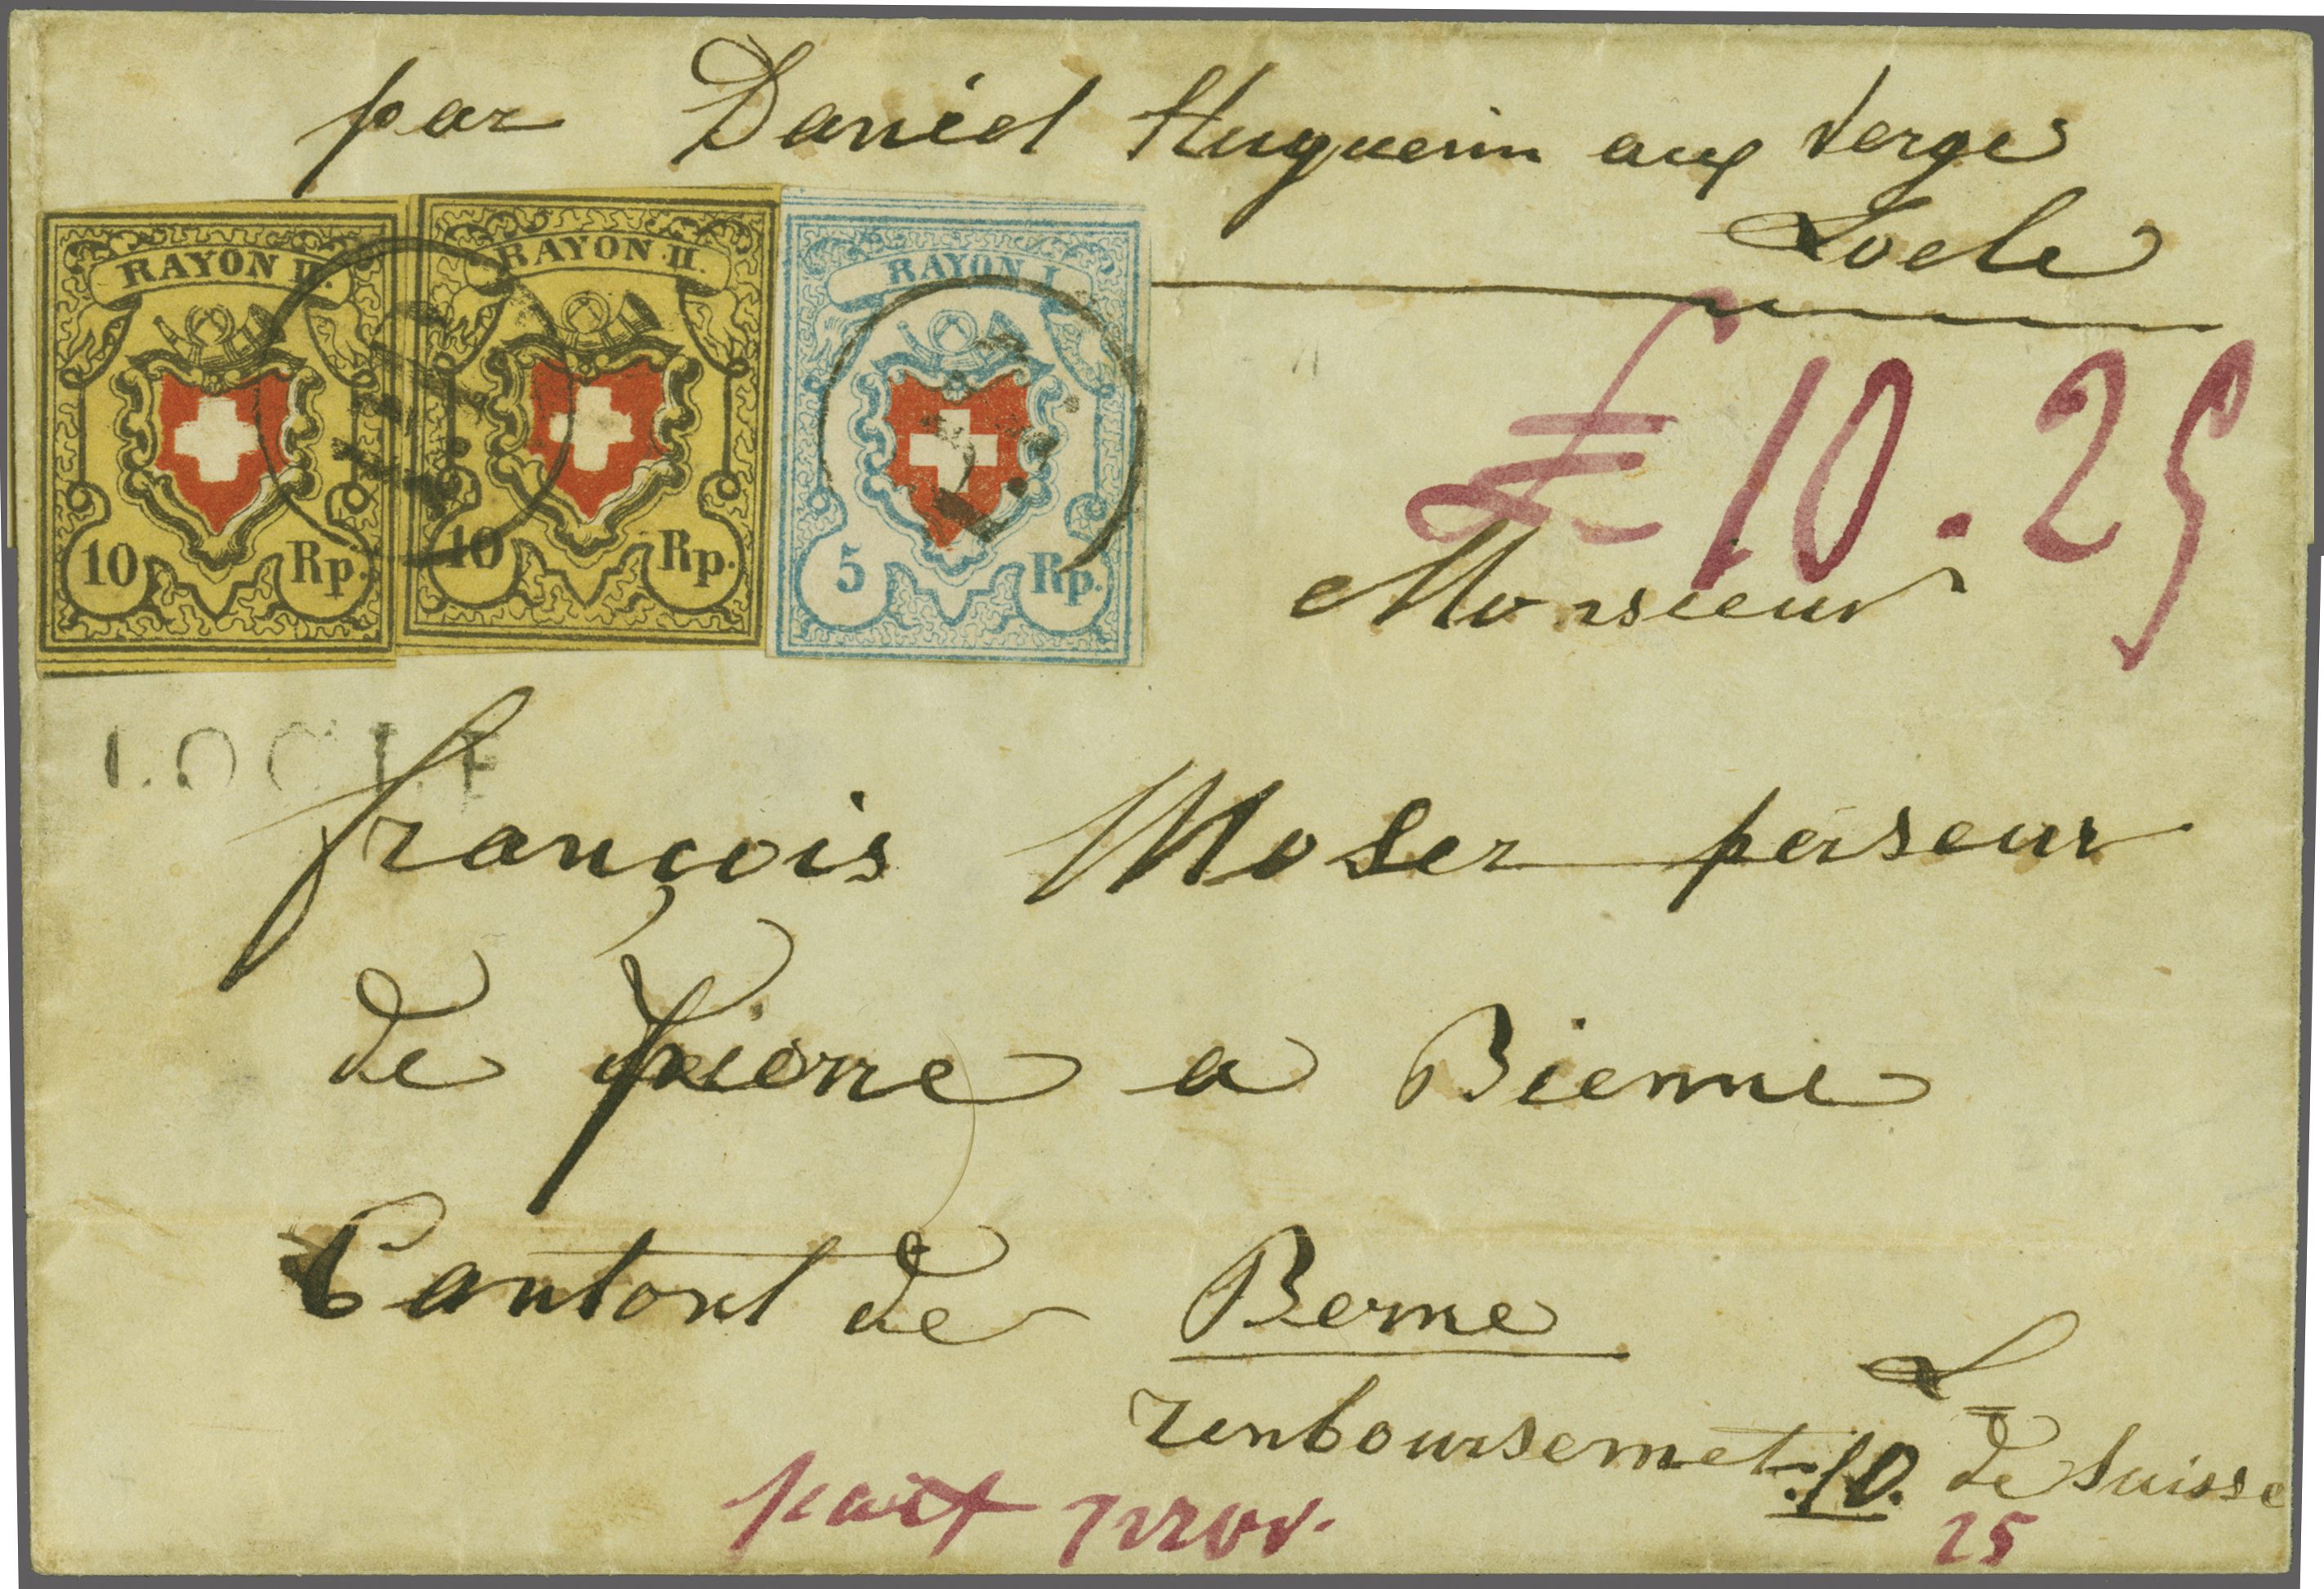 par Daniel Huguenin aux Verges
Locle
RAYON II.
10 Rp.
RAYON .II.
10 Rp.
RAYON I.
5 Rp.
£ 10.25
Monsieur
LOCLE
françois Moser perseur
de pierre a Bienne
Canton de Berne
renboursemet .10. L de Suisse
payt prov. 25